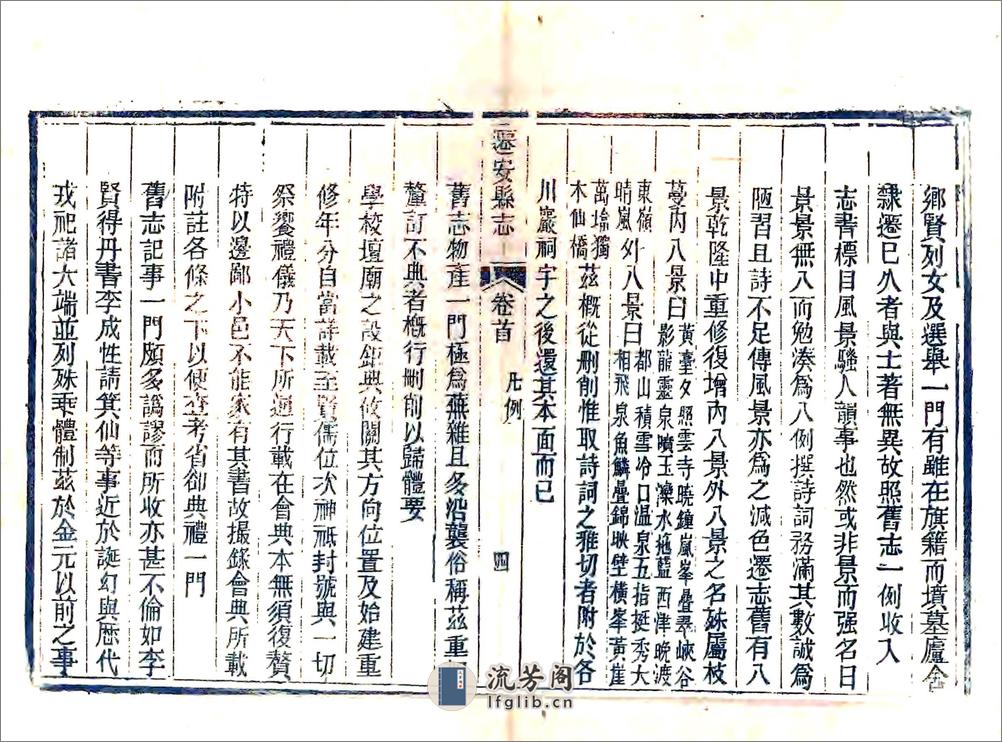 鄉賢列女及選舉一門有雖在旗籍而墳墓廬舍
隸遷已久者與土著無異故照舊志一例收入
志書標目風景騷人韻事也然或非景而强名曰
景景無八而勉湊為八例撰詩詞務滿其數誠為
陋習且詩不足傳風景亦為之減色遷志舊有八
景乾隆中重修復增內八景外八景之名殊屬枝
蔓內八景曰黃臺夕照雲寺曉鐘嵐峯疊翠峽谷
影龍靈泉噴玉灤水拖藍西津晚渡
東嶺
晴嵐外八景曰都山積雪冷口溫泉五指挺秀大
相飛泉魚鱗疊錦映壁橫峯黃崖
萬塔獨
木仙橋茲概從删削惟取詩詞之雅切者附於各
川巖祠宇之後還其本面而已
遷安縣志
卷首
凡例
四
舊志物產一門極為蕪雜且多沿襲俗稱茲重
釐訂不典者概行删削以歸體要
學校壇廟之設鉅典攸關其方向位置及始建重
修年分自當詳載至賢儒位次神祇封號與一切
祭饗禮儀乃天下所通行載在會典本無須復贅
特以邊鄙小邑不能家有其書故撮錄會典所載
附註各條之下以便查考省卻典禮一門
舊志記事一門頗多譌謬而所收亦甚不倫如李
賢得丹書李成性請箕仙等事近於誕幻與歷代
戎祀諸大端並列殊乖體制茲於金元以前之事
流芳阁
lfglib.cn